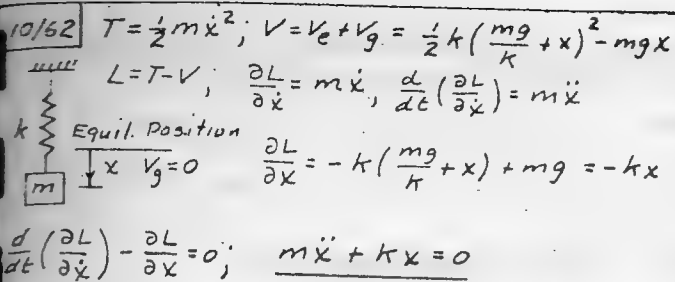 10/62 T = ½ m ẋ²; V = Ve + Vg = ½ k (mg/k + x)² - mgx
L = T - V; ∂L/∂ẋ = m ẋ, d/dt (∂L/∂ẋ) = m ẍ
k Equil. Position
x Vg = 0 ∂L/∂x = - k (mg/k + x) + mg = - kx
m
d/dt (∂L/∂ẋ) - ∂L/∂x = 0; m ẍ + kx = 0